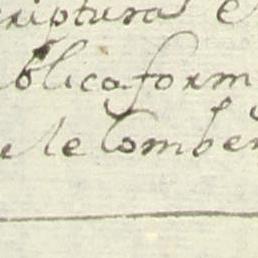 criptura e
blica form
le Comben